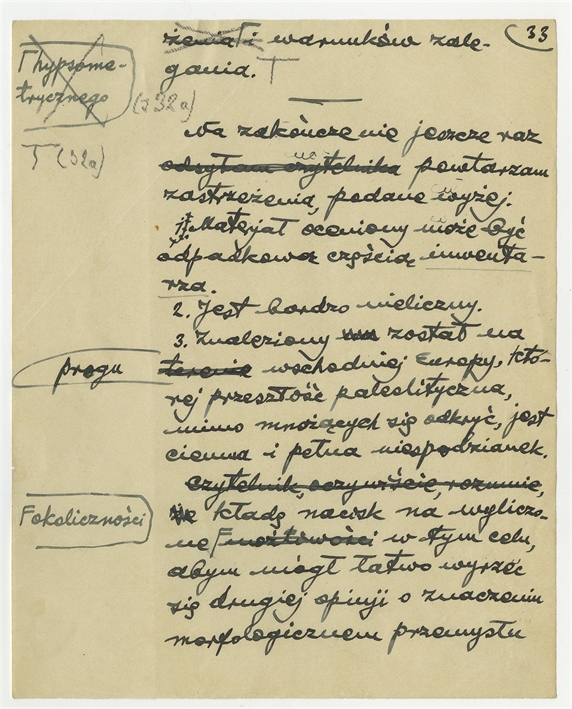 33
żeniali warunków zale-
gania. T
Γ hypsome-
trycznego
(s 32a)
T (32a)
Na zakończenie jeszcze raz
odsyłam czytelnika powtarzam
zastrzeżenia, podane wyżej.
1. Materjał oceniony może być
odpadkową częścią inwenta-
rza.
2. Jest bardzo nieliczny.
3. Znaleziony został na
progu
terenie wschodniej Europy, któ-
rej przeszłość paleolityczna,
mimo mnożących się odkryć, jest
ciemna i pełna niespodzianek.
Czytelnik, oczywiście, rozumie,
że kładę nacisk na wyliczo-
F okoliczności
ne F możłowości w tym celu,
abym mógł łatwo wyrzec
się drugiej opinji o znaczeniu
morfologicznem przemysłu